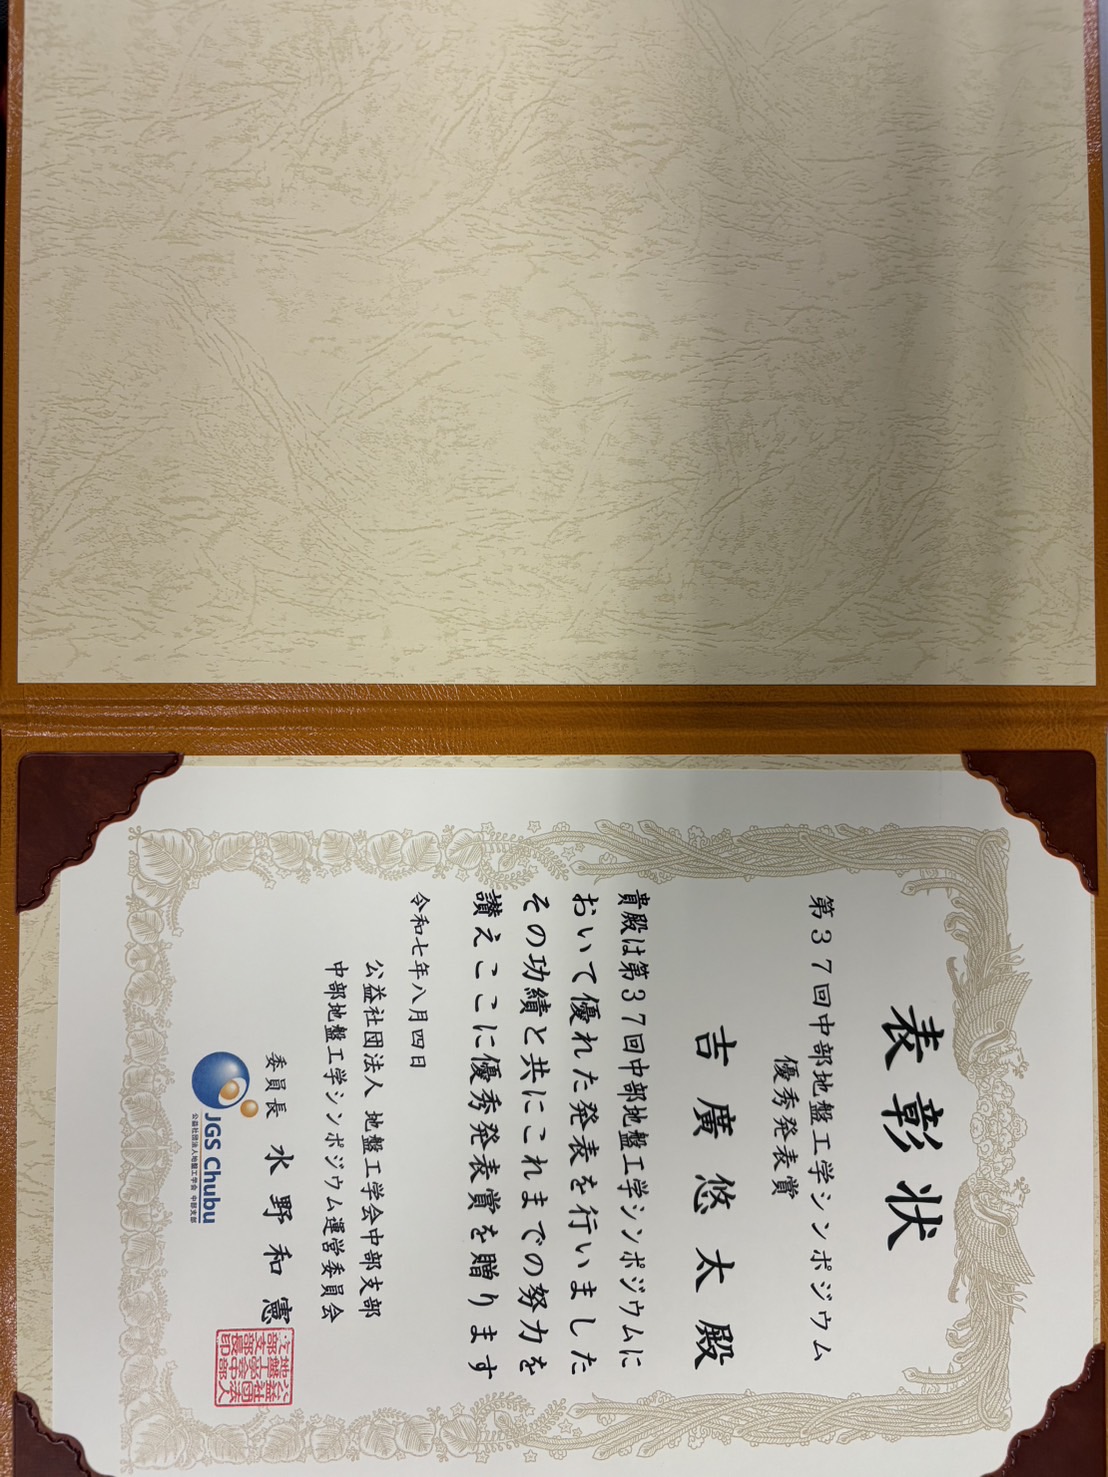 表彰状
第37回中部地盤工学シンポジウム
優秀発表賞
吉廣悠太殿
貴殿は第37回中部地盤工学シンポジウムに
おいて優れた発表を行いました
その功績と共にこれまでの努力を
讃えここに優秀発表賞を贈ります
令和七年八月四日
公益社団法人 地盤工学会中部支部
中部地盤工学シンポジウム運営委員会
委員長 水野和憲
JGS Chubu
公益社団法人地盤工学会 中部支部